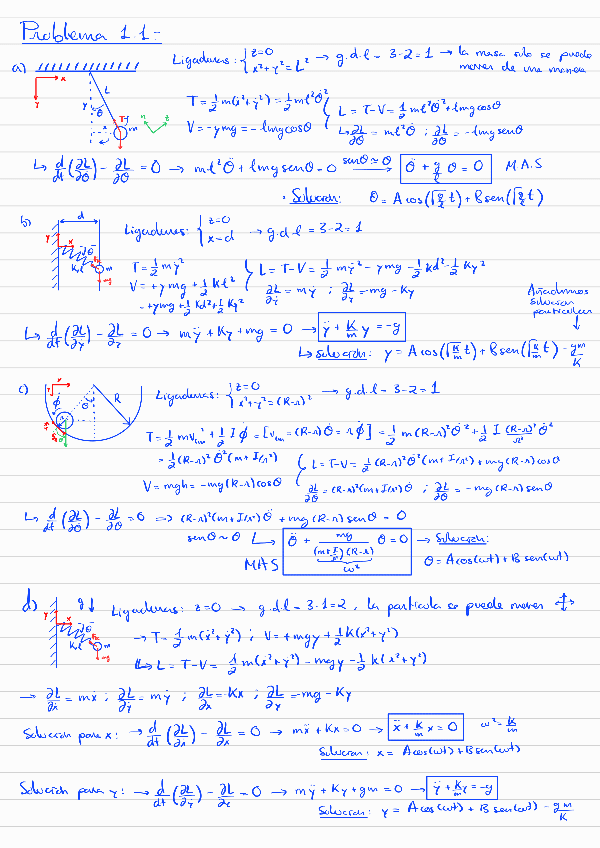 Problema 1.1.-
a) Ligaduras: { z=0 x²+y²=L² → g.d.l = 3-2=1 → la masa solo se puede mover de una manera
T = 1/2 m(ẋ²+ẏ²) = 1/2 ml²θ̇²
V = -ymg = -lmg cosθ
L = T-V = 1/2 ml²θ̇² + lmg cosθ
∂L/∂θ̇ = ml²θ̇ ; ∂L/∂θ = -lmg senθ
↳ d/dt (∂L/∂θ̇) - ∂L/∂θ = 0 → ml²θ̈ + lmg senθ = 0 senθ≈θ → θ̈ + g/l θ = 0 M.A.S
· Solución: θ = A cos(√g/l t) + B sen(√g/l t)
b) Ligaduras: { z=0 x=d → g.d.l = 3-2=1
T = 1/2 mẏ²
V = +ymg + 1/2 Kl² = +ymg + 1/2 Kd² + 1/2 Ky²
L = T-V = 1/2 mẏ² - ymg - 1/2 Kd² - 1/2 Ky²
∂L/∂ẏ = mẏ ; ∂L/∂y = -mg - Ky
Añadimos solución particular
↳ d/dt (∂L/∂ẏ) - ∂L/∂y = 0 → mÿ + Ky + mg = 0 → ÿ + K/m y = -g
↳ solución: y = A cos(√K/m t) + B sen(√K/m t) - gm/K
c) Ligaduras: { z=0 x²+y²=(R-r)² → g.d.l = 3-2=1
T = 1/2 mv²cm + 1/2 I φ̇² = [vcm = (R-r)θ̇ = r φ̇] = 1/2 m(R-r)²θ̇² + 1/2 I (R-r)²/r² θ̇²
= 1/2 (R-r)² θ̇² (m+I/r²)
V = mgh = -mg(R-r)cosθ
L = T-V = 1/2 (R-r)²θ̇²(m+I/r²) + mg(R-r)cosθ
∂L/∂θ̇ = (R-r)²(m+I/r²)θ̇ ; ∂L/∂θ = -mg(R-r)senθ
↳ d/dt (∂L/∂θ̇) - ∂L/∂θ = 0 => (R-r)²(m+I/r²)θ̈ + mg(R-r)senθ = 0
senθ≈θ ↳ θ̈ + mg/(m+I/r²)(R-r) θ = 0 → Solución:
MAS ω² θ = A cos(ωt) + B sen(ωt)
d) Ligaduras: z=0 → g.d.l = 3-1=2, la partícula se puede mover
→ T = 1/2 m(ẋ²+ẏ²) ; V = +mgy + 1/2 K(x²+y²)
↳ L = T-V = 1/2 m(ẋ²+ẏ²) - mgy - 1/2 k(x²+y²)
→ ∂L/∂ẋ = mẋ ; ∂L/∂ẏ = mẏ ; ∂L/∂x = Kx ; ∂L/∂y = -mg - Ky
Solución para x: → d/dt (∂L/∂ẋ) - ∂L/∂x = 0 → mẍ + Kx = 0 → ẍ + K/m x = 0 ω² = K/m
Solución: x = A cos(ωt) + B sen(ωt)
Solución para y: → d/dt (∂L/∂ẏ) - ∂L/∂y = 0 → mÿ + Ky + gm = 0 → ÿ + K/m y = -g
Solución: y = A cos(ωt) + B sen(ωt) - gm/K